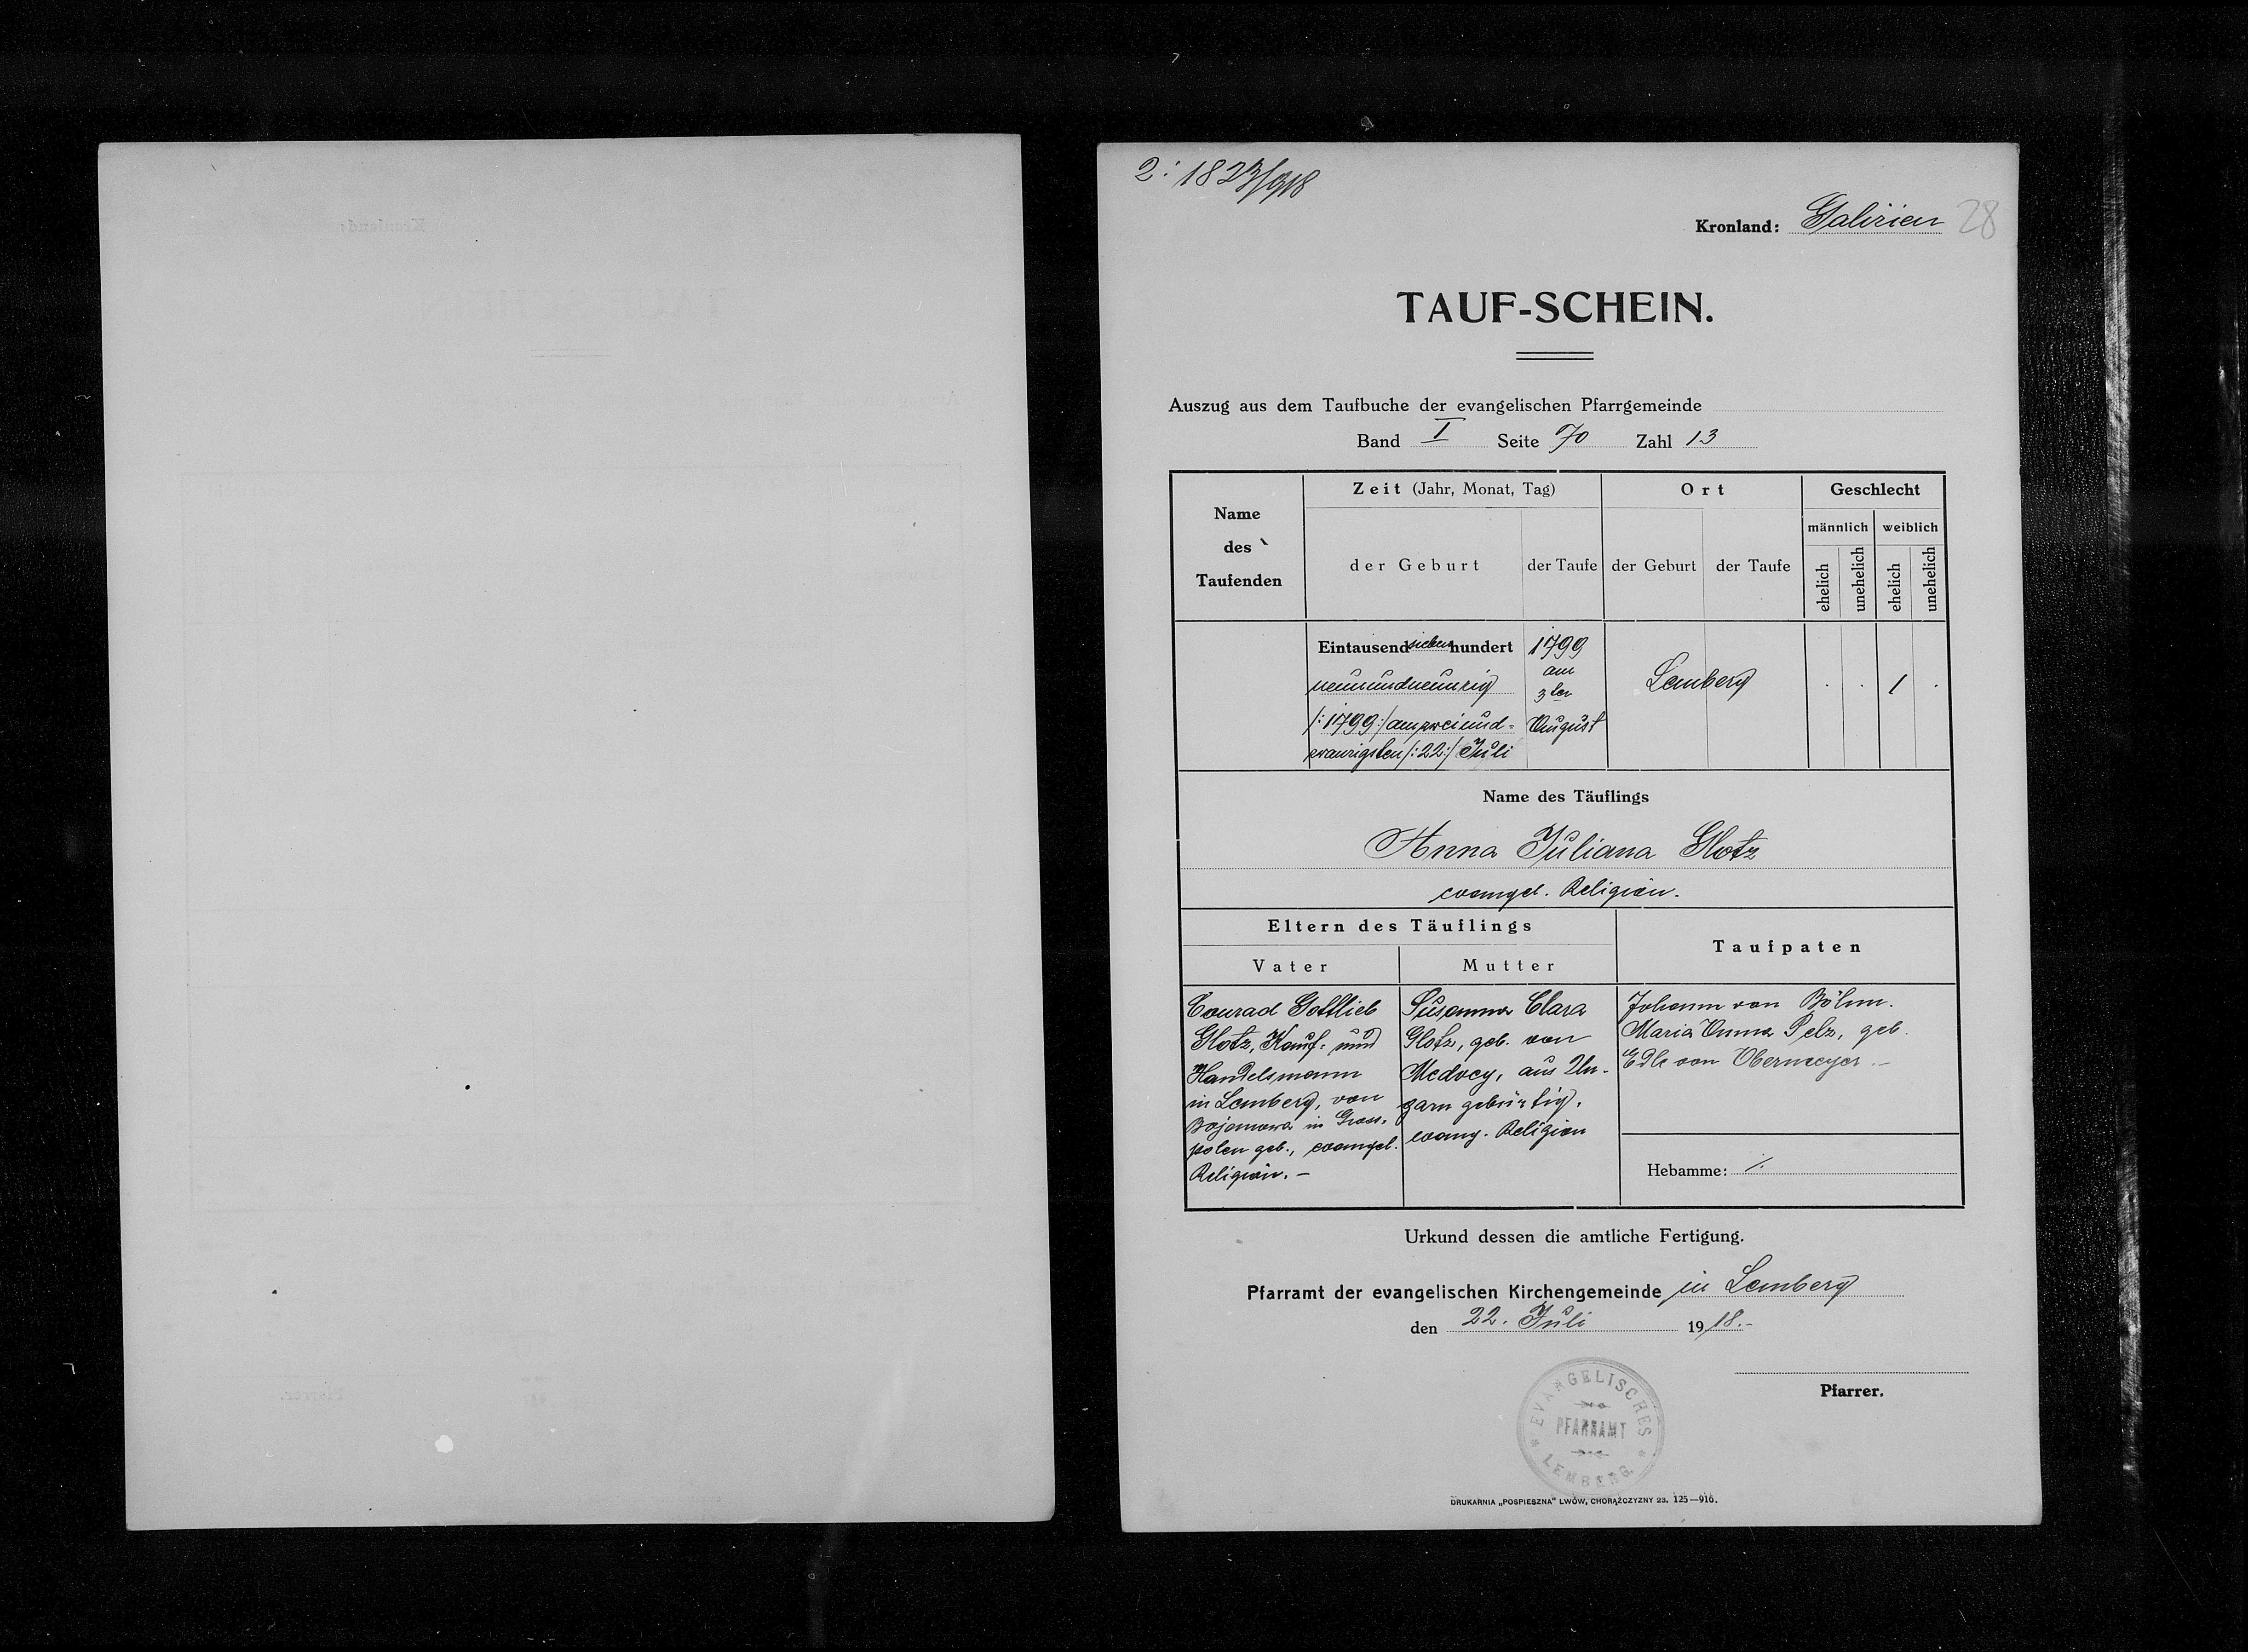 2: 1823/918
Kronland: Galizien 28
TAUF-SCHEIN.
Auszug aus dem Taufbuche der evangelischen Pfarrgemeinde
Band I Seite 70 Zahl 13
Name
des
Taufenden
Zeit (Jahr, Monat, Tag)
der Geburt
der Taufe
Ort
der Geburt
der Taufe
Geschlecht
männlich
weiblich
ehelich
unehelich
ehelich
unehelich
Eintausendsiebenhundert
neunundneunzig
/:1799:/ am zweiund-
zwanzigsten /:22:/ Juli
1799
am
3ten
August
Lemberg
. . 1 .
Name des Täuflings
Anna Juliana Glotz
evangel. Religion.
Eltern des Täuflings
Vater
Mutter
Taufpaten
Conrad Gottlieb
Glotz, Kauf- und
Handelsmann
in Lemberg, von
Bojanowa in Gross-
polen geb., evangel.
Religion. —
Susanna Clara
Glotz, geb. von
Medvey, aus Un-
garn gebürtig,
evang. Religion
Johann von Böhm.
Maria Anna Pelz, geb.
Edle von Obermeyer. —
Hebamme: /.
Urkund dessen die amtliche Fertigung.
Pfarramt der evangelischen Kirchengemeinde in Lemberg
den 22. Juli 1918.-
Pfarrer.
EVANGELISCHES
PFARRAMT
LEMBERG.
DRUKARNIA „POSPIESZNA" LWÓW, CHORĄŻCZYZNY 23. 125—916.